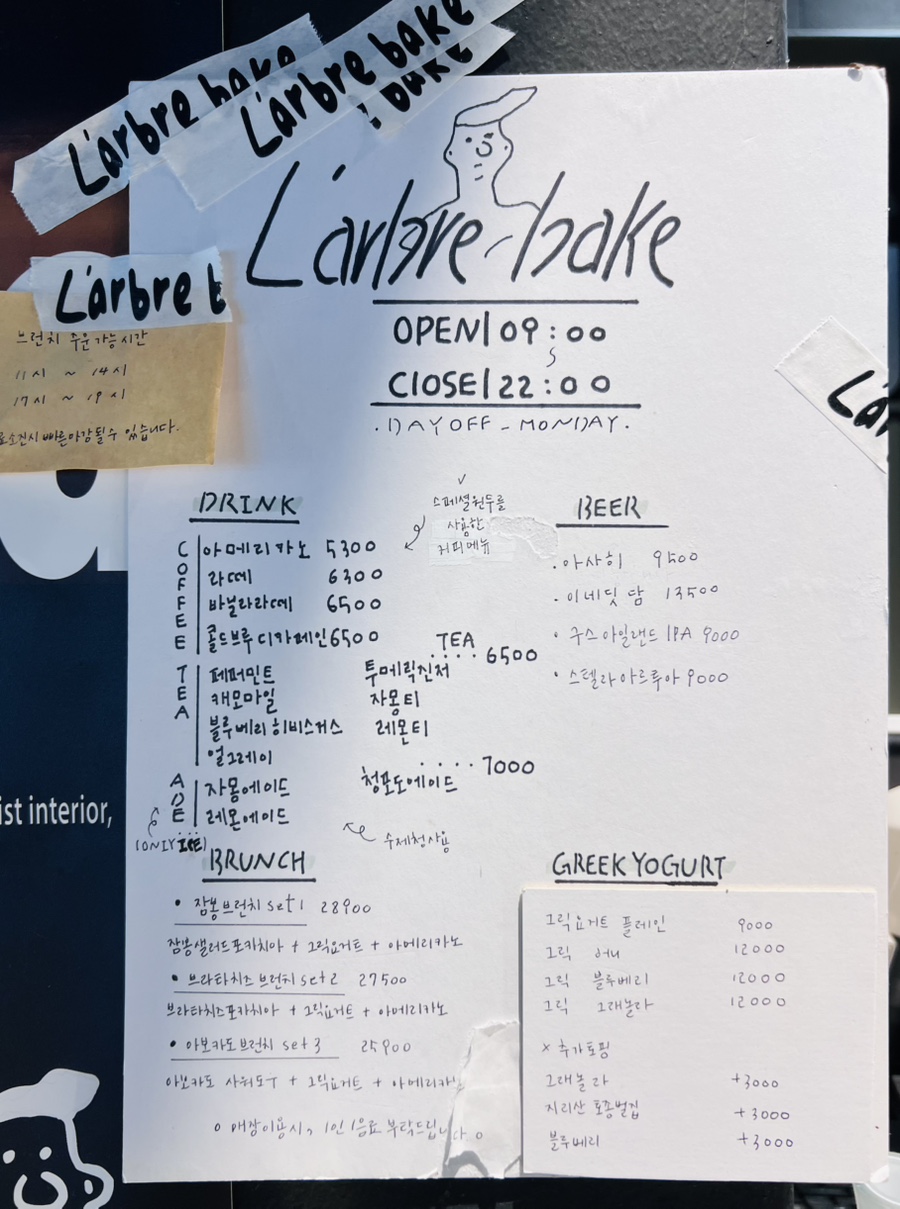 L'arbre bake
L'arbre bake
bake
L'arbre b
L'arbre-bake
OPEN|09:00
CLOSE|22:00
.DAY OFF - MONDAY.
브런치 주문가능시간
11시 ~ 14시
17시 ~ 19시
소진시 빠른마감될수 있습니다.
La
DRINK
스페셜원두를
사용한
커피메뉴
COFFEE
아메리카노 5300
라떼 6300
바닐라라떼 6500
콜드브루 디카페인 6500
TEA
TEA
.... 6500
페퍼민트 투메릭진저
캐모마일 자몽티
블루베리 히비스커스 레몬티
얼그레이
ADE
(ONLY ICE)
.... 7000
자몽에이드 청포도에이드
레몬에이드
수제청사용
BEER
·아사히 9500
·이네딧 담 13500
·구스아일랜드 IPA 9000
·스텔라아르투아 9000
BRUNCH
• 잠봉브런치 set1 28900
잠봉샐러드포카치아 + 그릭요거트 + 아메리카노
• 브라타치즈 브런치 set2 27500
브라타치즈포카치아 + 그릭요거트 + 아메리카노
• 아보카도브런치 set3 25900
아보카도 사워도우 + 그릭요거트 + 아메리카노
o 매장이용시, 1인 1음료 부탁드립니다 o
GREEK YOGURT
그릭요거트 플레인 9000
그릭 허니 12000
그릭 블루베리 12000
그릭 그래놀라 12000
× 추가토핑
그래놀라 +3000
지리산 토종벌집 +3000
블루베리 +3000
ist interior,